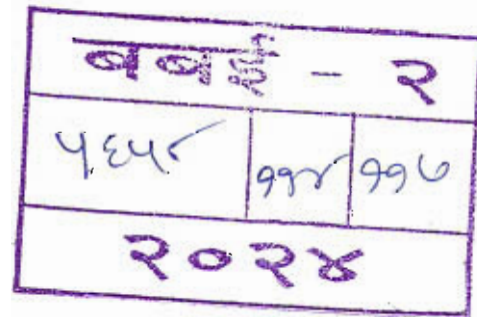 बबई - २
५६५८ ११४ ११७
२०२४